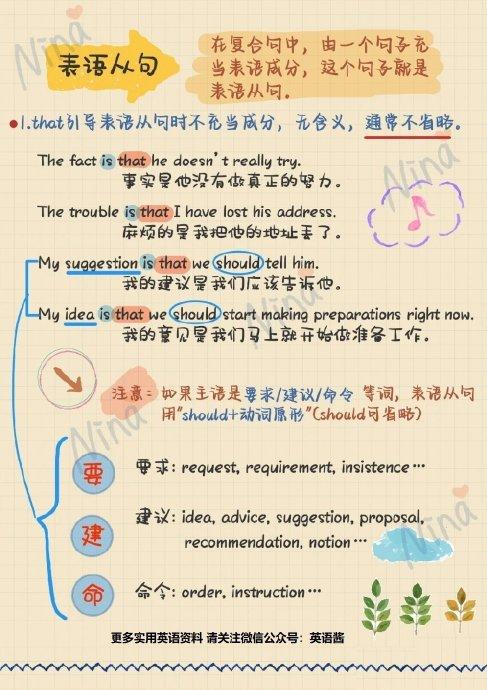 Nina
表语从句
在复合句中，由一个句子充
当表语成分，这个句子就是
表语从句.
1.that引导表语从句时不充当成分，无含义，通常不省略。
The fact is that he doesn't really try.
事实是他没有做真正的努力。
Nina
The trouble is that I have lost his address.
麻烦的是我把他的地址丢了。
My suggestion is that we should tell him.
我的建议是我们应该告诉他。
My idea is that we should start making preparations right now.
我的意见是我们马上就开始做准备工作。
Nina
注意：如果主语是要求/建议/命令 等词，表语从句
用"should+动词原形"(should可省略)
Nina
要
要求: request, requirement, insistence…
建
建议: idea, advice, suggestion, proposal,
recommendation, notion…
Nina
命
命令: order. instruction…
更多实用英语资料 请关注微信公众号：英语酱